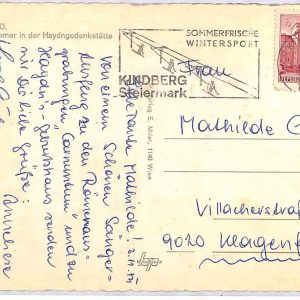 mer in der Haydngedenkstätte
SOMMERFRISCHE
WINTERSPORT
KINDBERG
Steiermark
Verlag E. Miler, 1140 Wien
Liebe Tante Mathilde!
Von einem schönen Sänger-
ausflug zu den Römeraus-
grabungen "Carnuntum" und zu
Haydn's-Geburtshaus senden
wir Dir liebe Grüße:
Anneliese
Frau
Mathilde G
Villacherstraß
9020 Klagenf